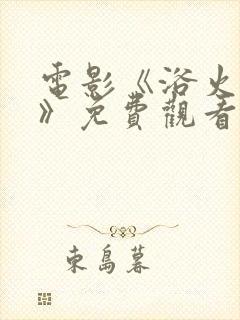 電影《浴火
》免費觀看
東島暮